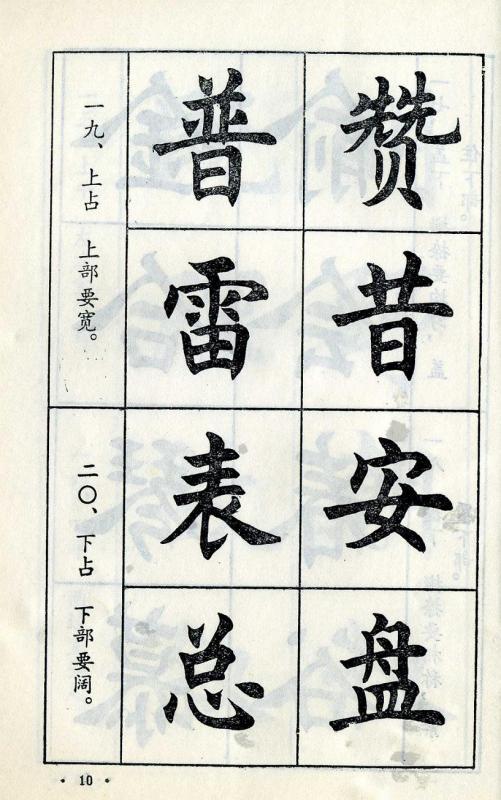 一九、上占 上部要宽。
普赞
雷昔
二〇、下占 下部要阔。
表安
总盘
· 10 ·